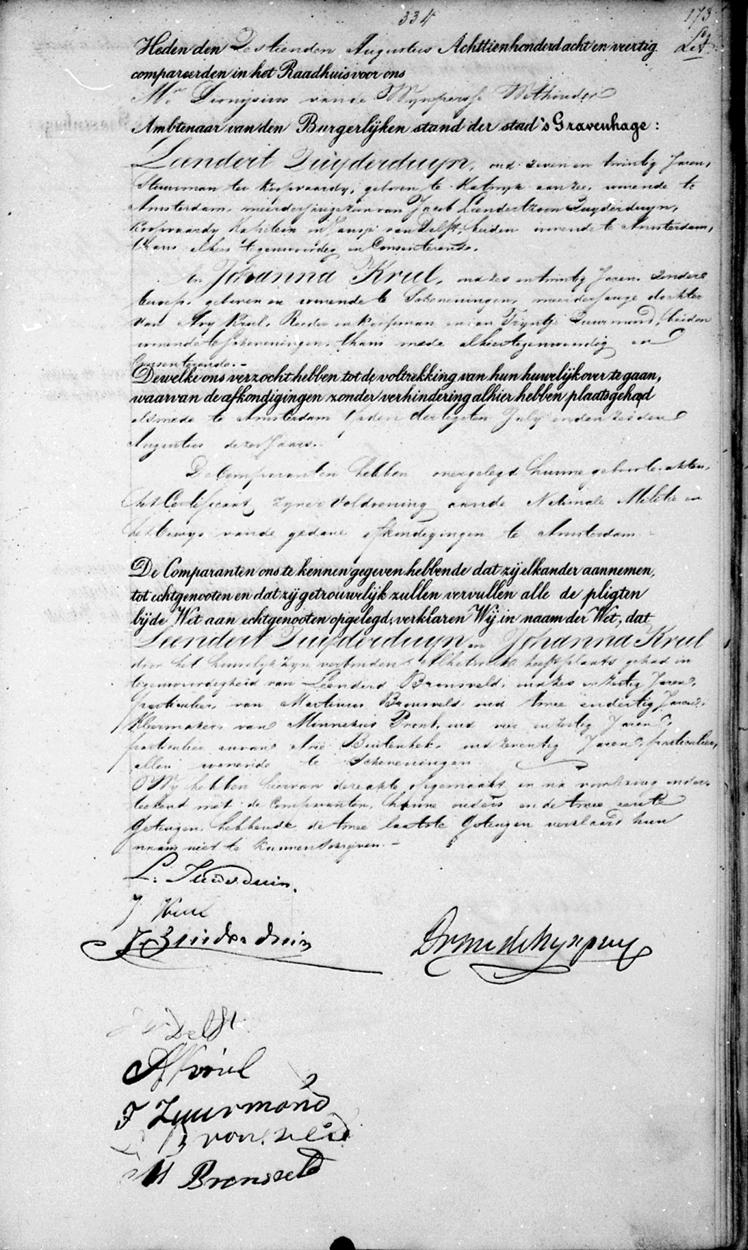 334
173
Heden den Zestienden Augustus Achttienhonderd acht en veertig
compareerden in het Raadhuis voor ons
Mr Dionijsius van de Wijnpersse Wethouder
Ambtenaar van den Burgerlijken stand der stad 's Gravenhage:
Leendert Zuyderduyn, oud zeven en twintig Jaren,
Stuurman ter Koopvaardy, geboren te Katwyk aan Zee, wonende te
Amsterdam, meerderjarige zoon van Jacob Leendertzoon Zuyderduyn,
Koopvaardy Kapitein en Jansje van Delft, beiden wonende te Amsterdam,
thans alhier tegenwoordig en Consenterende.
en Johanna Krul, oud zes en twintig Jaren, zonder
beroep, geboren en wonende te Scheveningen, meerderjarige dochter
van Ary Krul, Reeder en Koopman en van Tryntje Zuurmond, beiden
wonende te Scheveningen, thans mede alhier tegenwoordig en
Consenterende.-
Dewelke ons verzocht hebben tot de voltrekking van hun huwelijk over te gaan,
waarvan de afkondigingen zonder verhindering alhier hebben plaats gehad
alsmede te Amsterdam den dertigsten July en den zesden
Augustus dezes Jaars.
De Comparanten hebben overgelegd hunne geboorte akten,
het Certificaat zyner Voldoening aan de Nationale Militie en
het bewys van de gedane afkondigingen te Amsterdam.
De Comparanten ons te kennen gegeven hebbende dat zij elkander aannemen,
tot echtgenooten en dat zij getrouwelijk zullen vervullen alle de pligten
bij de Wet aan echtgenooten opgelegd, verklaren Wij in naam der Wet, dat
Leendert Zuyderduyn en Johanna Krul
door het huwelyk zyn verbonden. Al hetwelk heeft plaats gehad in
tegenwoordigheid van Leendert Bronsveld, oud zes en dertig Jaren,
particulier, van Martinus Bronsveld oud twee en dertig Jaren,
Kleermaker, van Minnekus Pronk, oud vier en zestig Jaren,
particulier en van Arie Buitenhek, oud zeventig Jaren, particulier,
allen wonende te Scheveningen.
Wy hebben hiervan deze akte opgemaakt en na voorlezing onder-
teekend met de Comparanten, hunne ouders en de twee eerste
Getuigen, hebbende de twee laatste Getuigen verklaard hun
naam niet te kunnen schryven.-
L. Zuiderduin.
J Krul
J. Zuiderduin
D van de Wijnpersse
Delft
A Krul
T Zuurmond
L Bronsveld
M Bronsveld